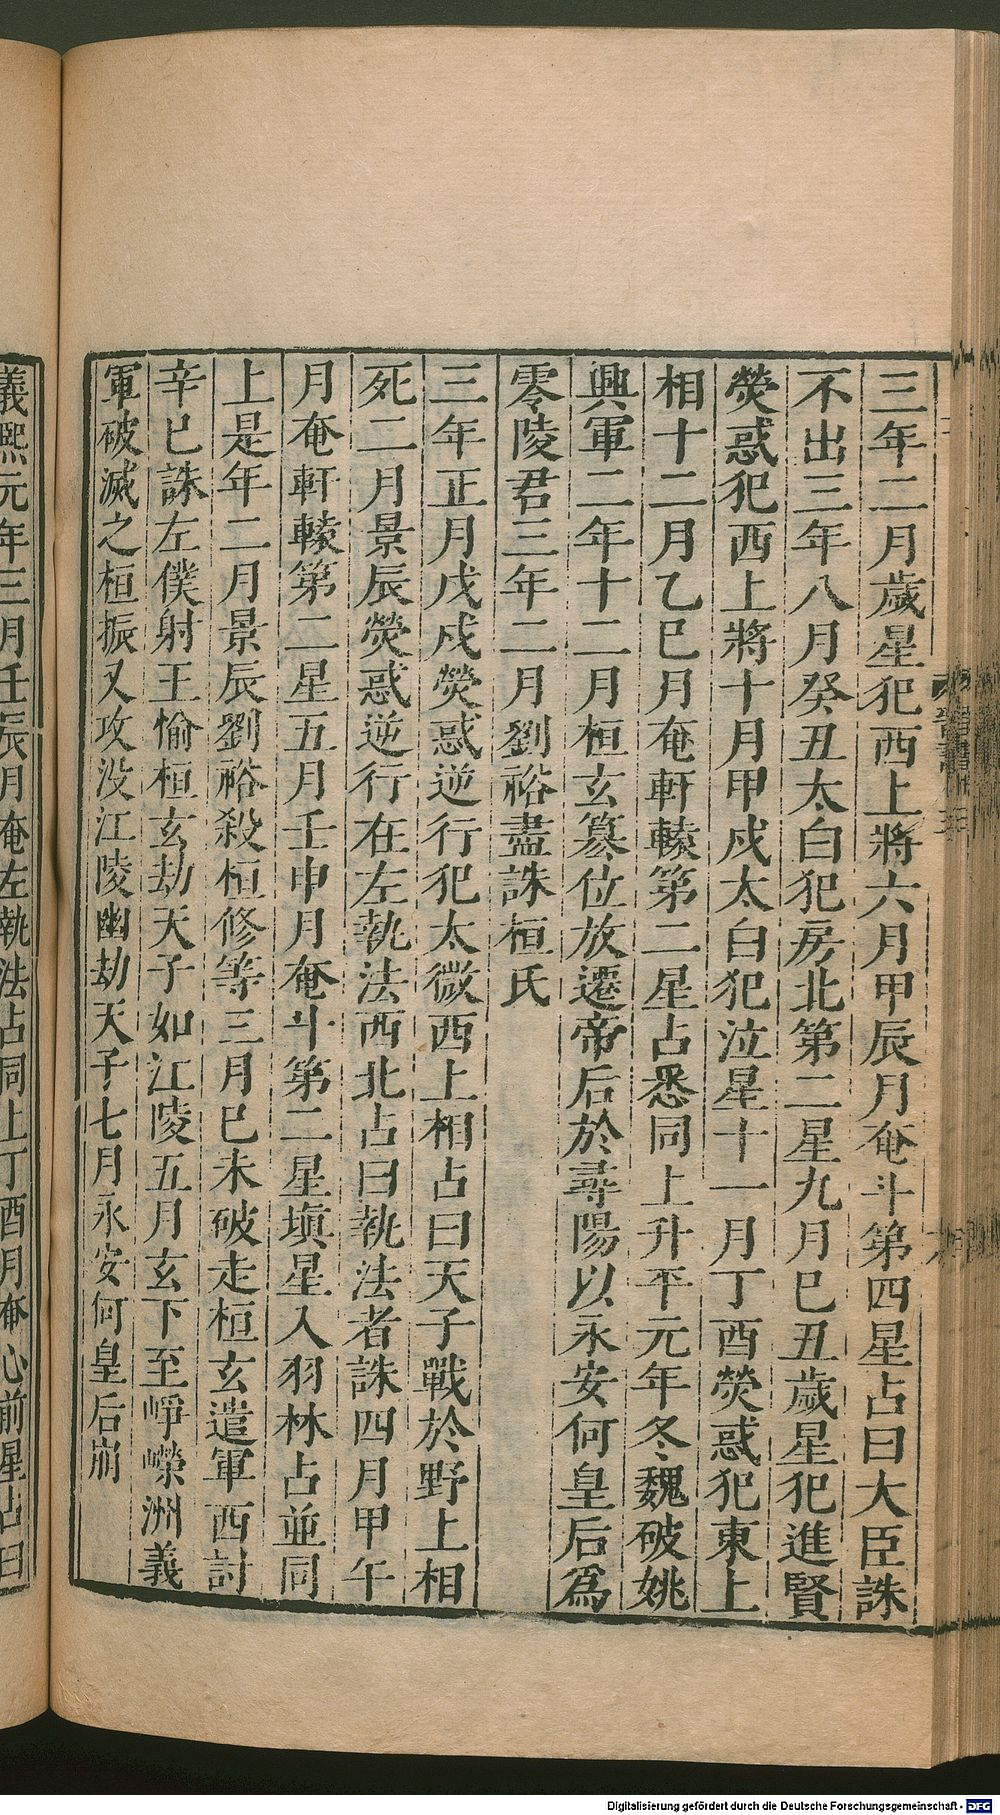 三年二月歲星犯西上將六月甲辰月奄斗第四星占曰大臣誅
不出三年八月癸丑太白犯房北第二星九月巳丑歲星犯進賢
熒惑犯西上將十月甲戌太白犯泣星十一月丁酉熒惑犯東上
相十二月乙巳月奄軒轅第二星占悉同上升平元年冬魏破姚
興軍二年十二月桓玄篡位放遷帝后於尋陽以永安何皇后爲
零陵君三年二月劉裕盡誅桓氏
三年正月戊戌熒惑逆行犯太微西上相占曰天子戰於野上相
死二月景辰熒惑逆行在左執法西北占曰執法者誅四月甲午
月奄軒轅第二星五月壬申月奄斗第二星塡星入羽林占並同
上是年二月景辰劉裕殺桓修等三月巳未破走桓玄遣軍西討
辛巳誅左僕射王愉桓玄劫天子如江陵五月玄下至崢嶸洲義
軍破滅之桓振又攻没江陵幽劫天子七月永安何皇后崩
義熙元年三月壬辰月奄左執法占同上丁酉月奄心前星占曰
Digitalisierung gefördert durch die Deutsche Forschungsgemeinschaft - DFG